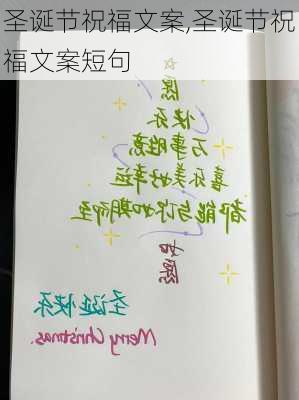 圣诞节祝福文案,圣诞节祝
福文案短句
愿
快乐
万事胜意
喜乐美好幸运
都能与你如期而至
如愿
圣诞快乐
Merry Christmas.